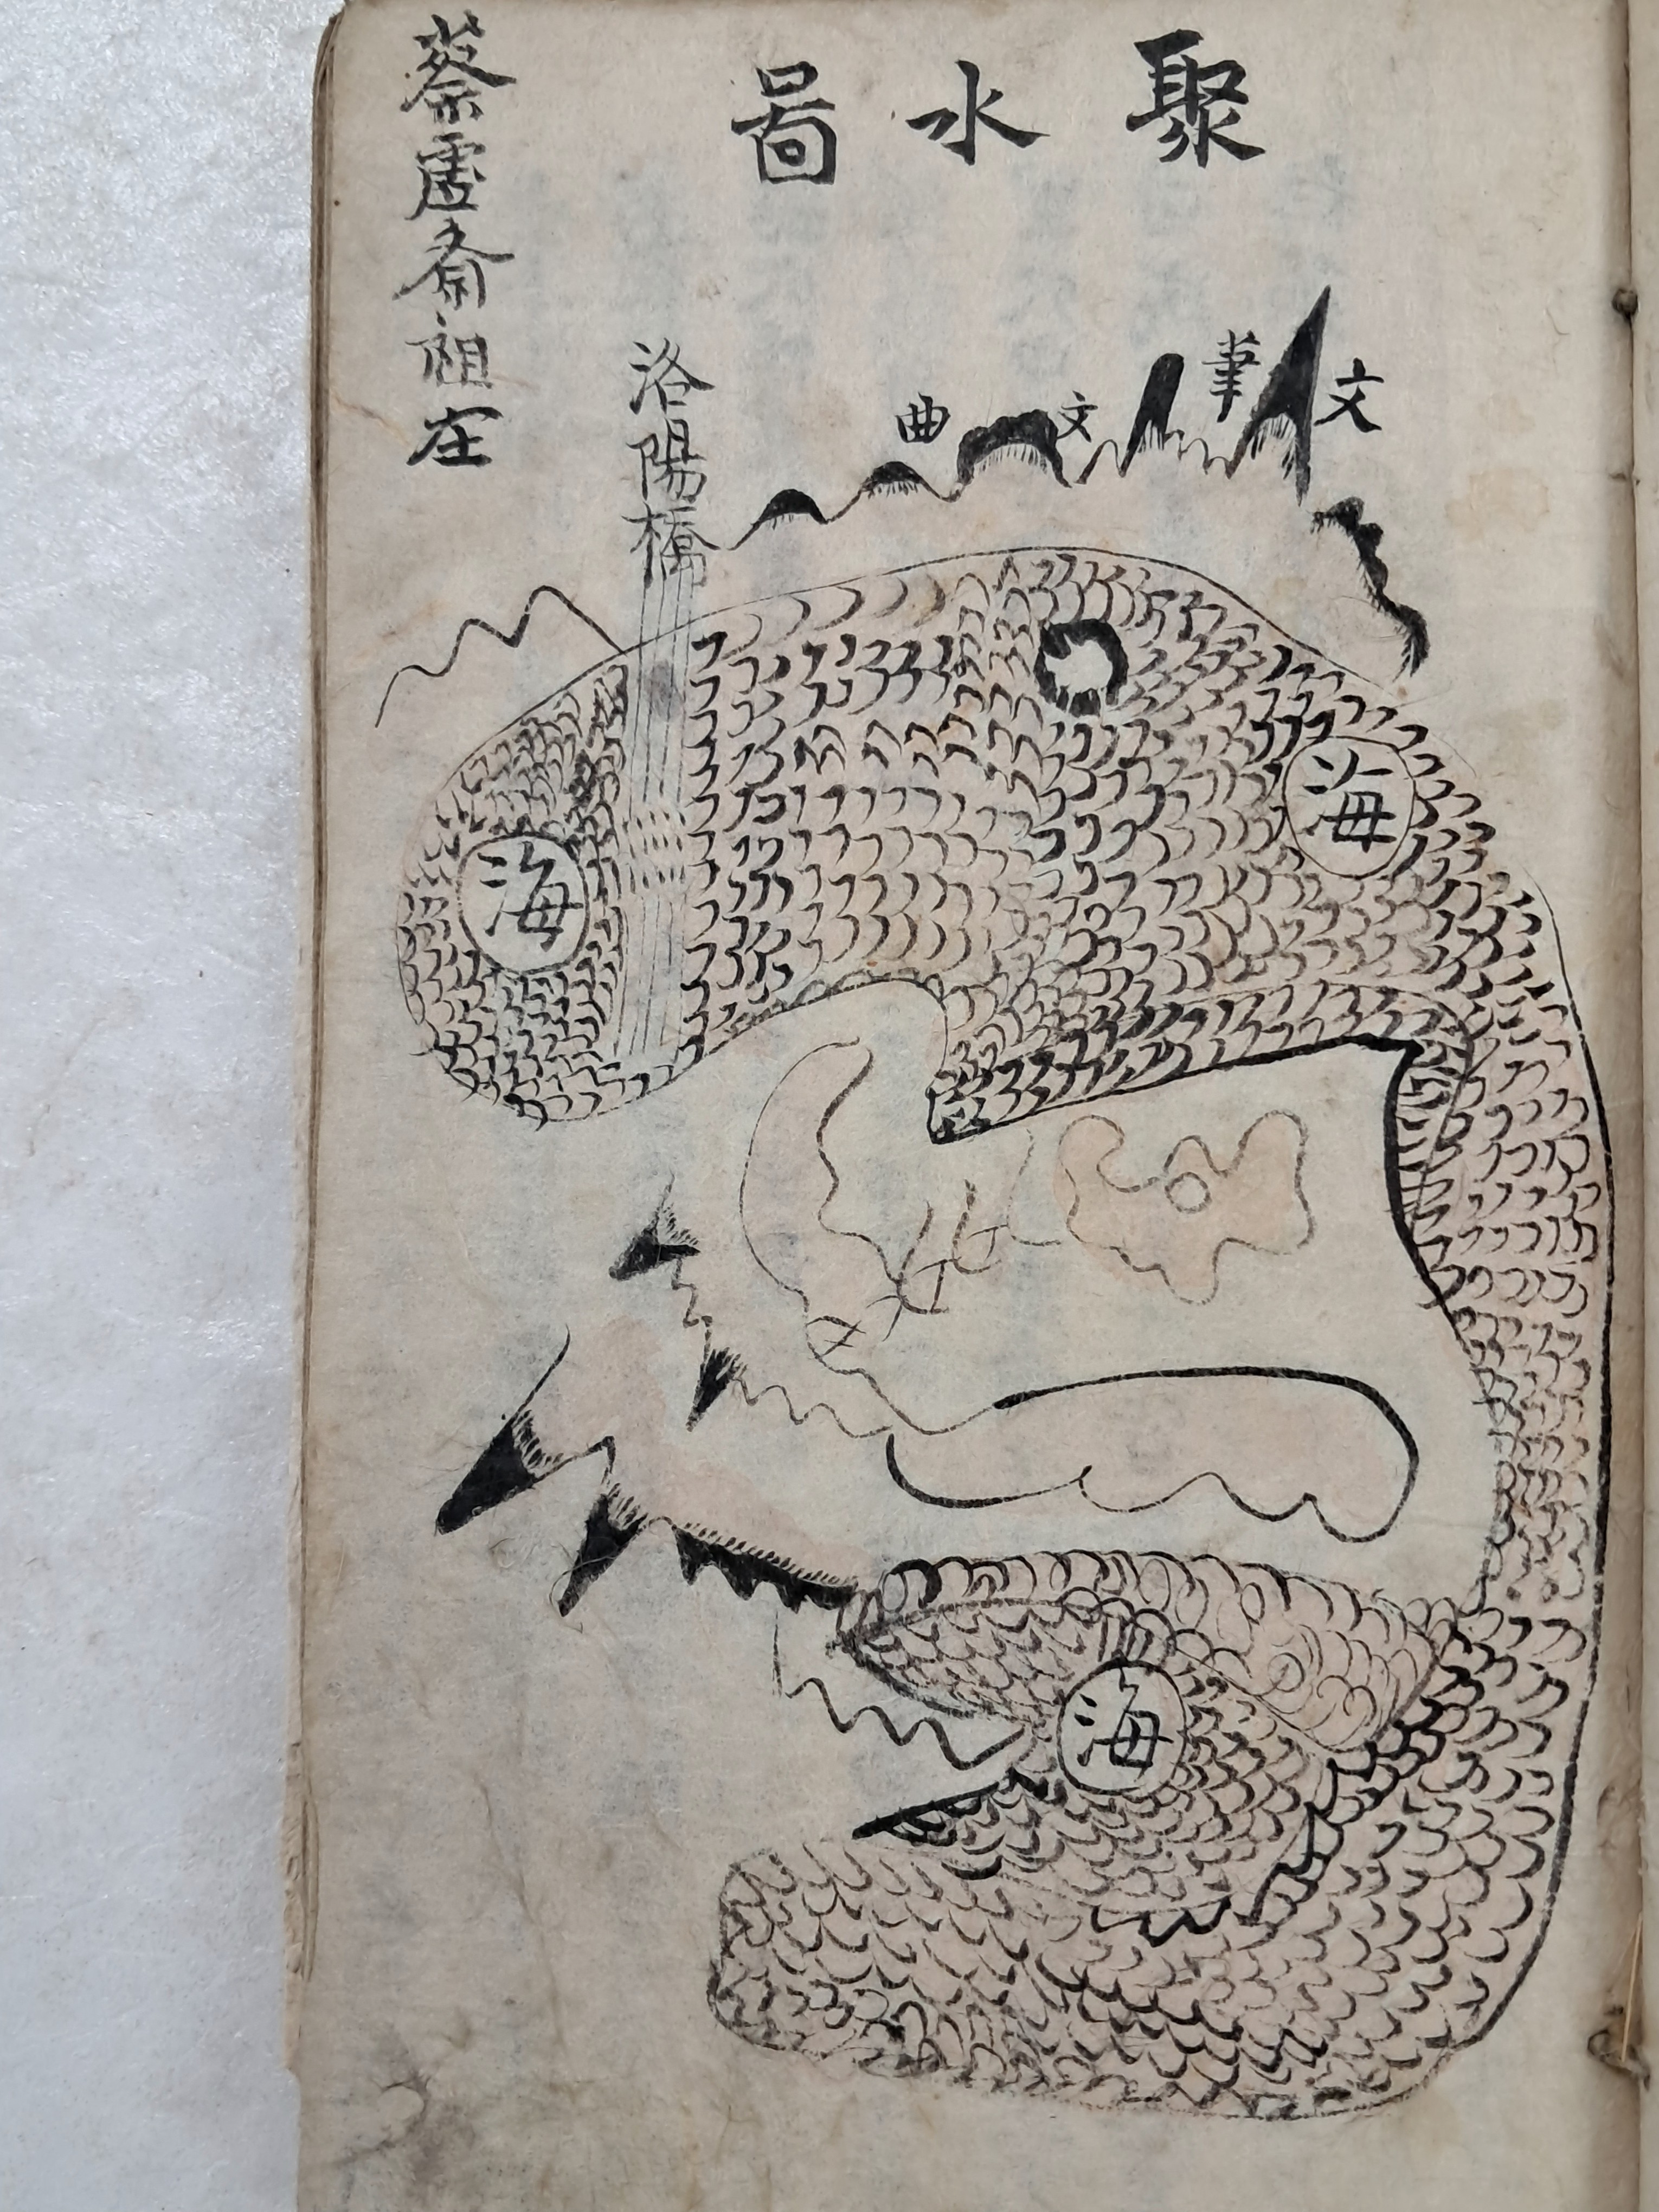 聚水啚
文筆
文曲
洛陽橋
蔡虛斎祖
海
海
海